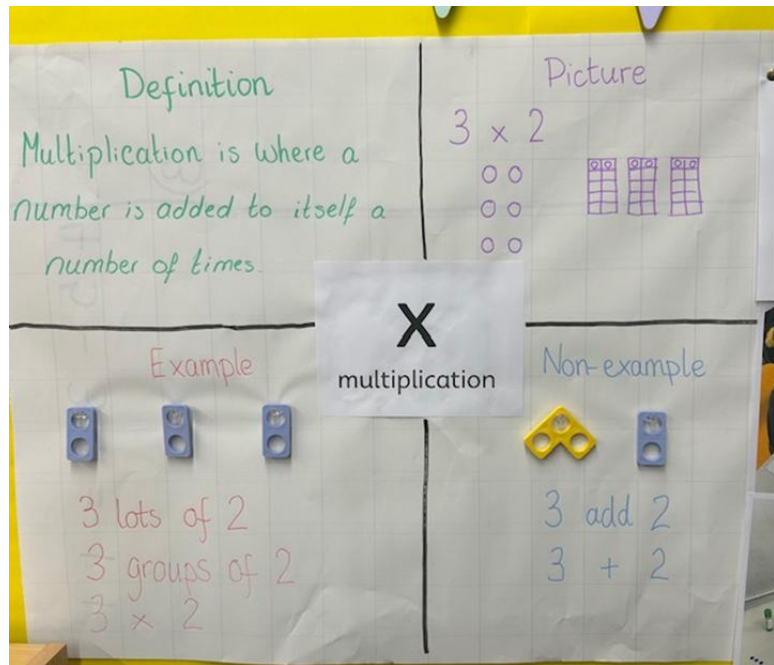 Definition
Multiplication is where a
number is added to itself a
number of times.
Picture
3 x 2
X
multiplication
Example
3 lots of 2
3 groups of 2
3 x 2
Non-example
3 add 2
3 + 2